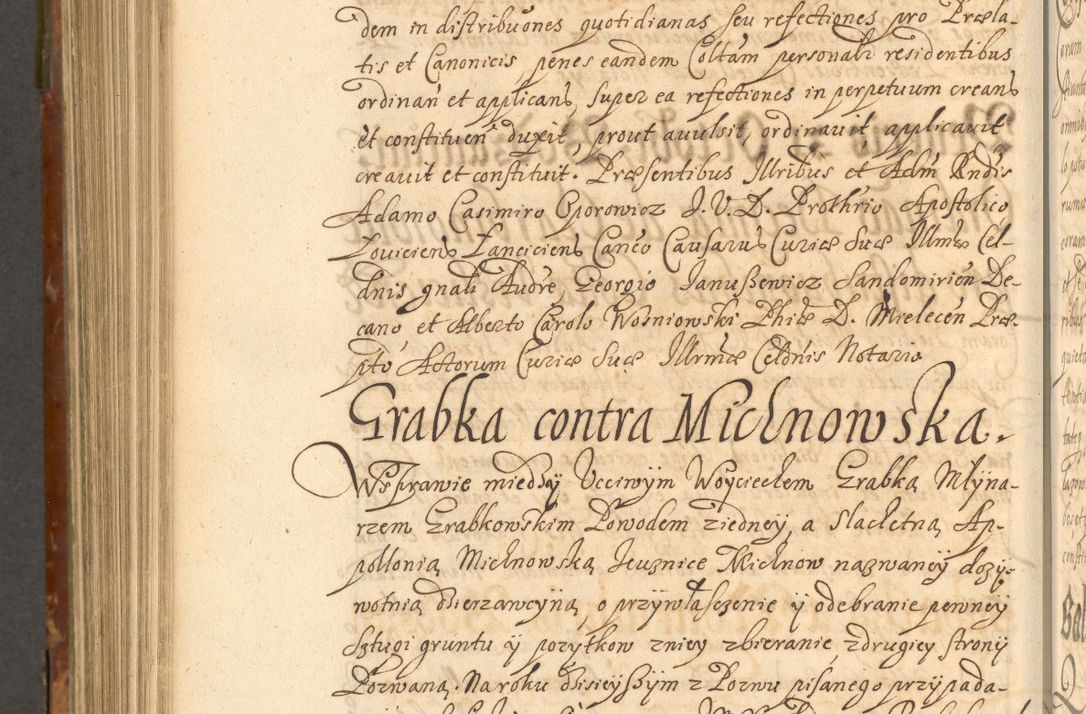 dem in distribuōnes quotidianas seu refectiones pro Præla-
tis et Canonicis penes eandem Coltam personalr residentibus
ordinan̄ et applicans, super ea refectiones in perpetuum creans
et constituen̄ duxit, prout auulsit, ordinauit applicauit
creauit et constituit. Præsentibus Illribus et Adm̄ Rndis
Adamo Casimiro Oporowicz I. V. D. Prothrio Apostolico
Louiciens Lanciciens Canco Causarus Curiæ Suæ Illmæ Cel-
dnis gnali Audre, Georgio Janußewicz Sandomirien De-
cano et Alberto Carolo Wosniowski Philæ D. Mielecen Præ-
pto Actorum Curiæ Suæ Illrmæ Celdnis Notario
Grabka contra Michnowska.
W Sprawie miedzy Vcciwym Woyciechem Grabką Młyna-
rzem Grabkowskim Powodem ziedney, a Slachetną Ap-
pollonią Michnowską Kuznice Michnow nazwaney dozy-
wotnią dzierzawcyną, o przywłasczenie y odebranie pewney
Sztugi gruntu y pozytkow zniey zbieranie zdrugiey strony
Pozwaną. Na roku dzisieyszym z Pozwu pisanego przypada-